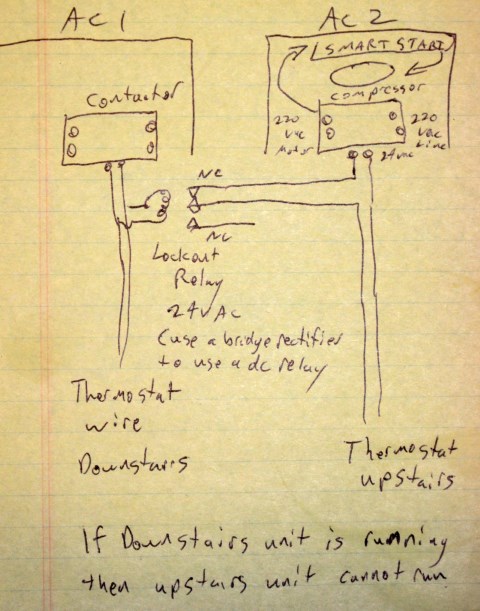 AC 1
AC 2
SMART START
compressor
Contactor
220
Vac
Motor
220
Vac
Line
24vac
NC
NC
Lockout
Relay
24VAC
(use a bridge rectifier
to use a dc relay
Thermostat
wire
Downstairs
Thermostat
upstairs
If Downstairs unit is running
then upstairs unit cannot run